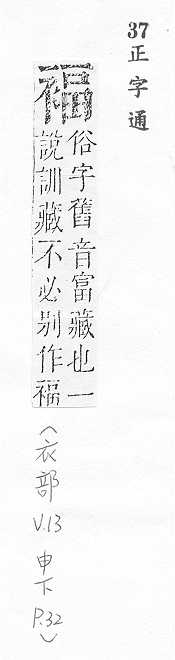 37
正字通
褔
俗字舊音富藏也一
說訓藏不必别作褔
(衣部 V.13 申下 P.32)